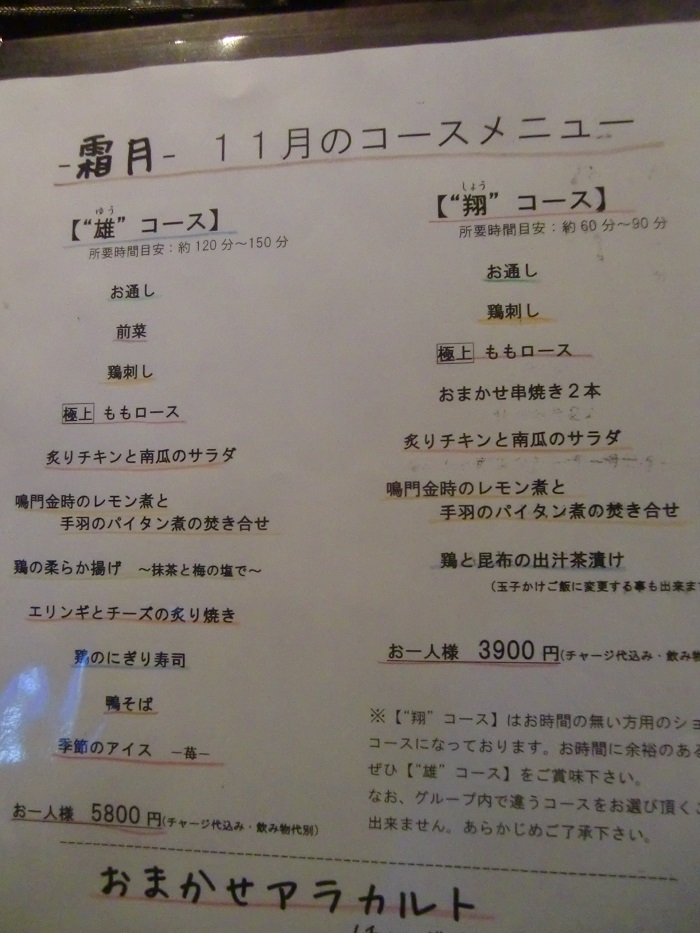 -霜月- 11月のコースメニュー
ゆう
【“雄” コース】
所要時間目安：約120分～150分
お通し
前菜
鶏刺し
極上 ももロース
炙りチキンと南瓜のサラダ
鳴門金時のレモン煮と
手羽のパイタン煮の焚き合せ
鶏の柔らか揚げ ～抹茶と梅の塩で～
エリンギとチーズの炙り焼き
鶏のにぎり寿司
鴨そば
季節のアイス ―苺―
お一人様 5800円(チャージ代込み・飲み物代別)
しょう
【“翔” コース】
所要時間目安：約60分～90分
お通し
鶏刺し
極上 ももロース
おまかせ串焼き2本
炙りチキンと南瓜のサラダ
鳴門金時のレモン煮と
手羽のパイタン煮の焚き合せ
鶏と昆布の出汁茶漬け
(玉子かけご飯に変更する事も出来ま
お一人様 3900円(チャージ代込み・飲み物
※【“翔” コース】はお時間の無い方用のショ
コースになっております。お時間に余裕のある
ぜひ【“雄” コース】をご賞味下さい。
なお、グループ内で違うコースをお選び頂くこ
出来ません。あらかじめご了承下さい。
おまかせアラカルト